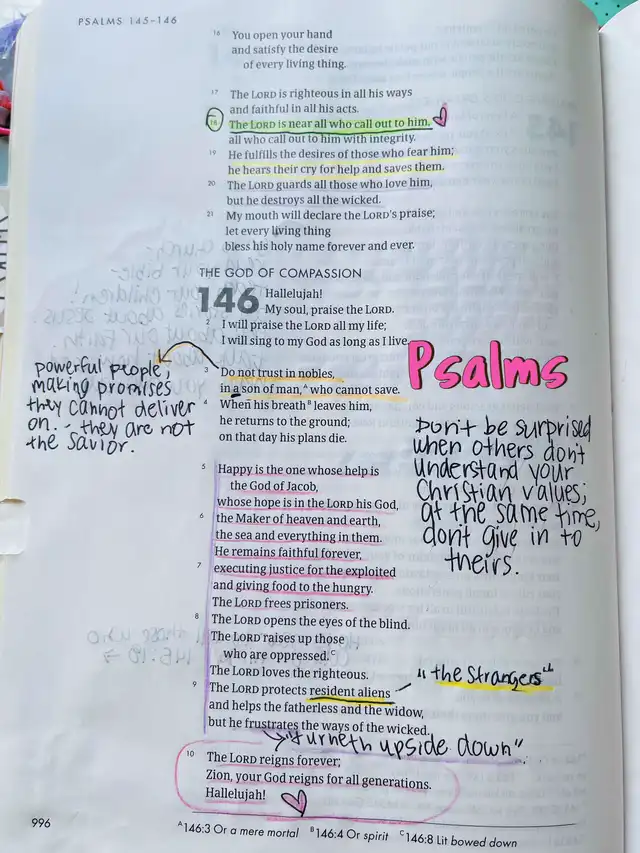 PSALMS 145–146
16 You open your hand
and satisfy the desire
of every living thing.
17 The LORD is righteous in all his ways
and faithful in all his acts.
18 The LORD is near all who call out to him,
all who call out to him with integrity.
19 He fulfills the desires of those who fear him;
he hears their cry for help and saves them.
20 The LORD guards all those who love him,
but he destroys all the wicked.
21 My mouth will declare the LORD's praise;
let every living thing
bless his holy name forever and ever.
THE GOD OF COMPASSION
146 Hallelujah!
My soul, praise the LORD.
2 I will praise the LORD all my life;
I will sing to my God as long as I live.
3 Do not trust in nobles,
in a son of man,ᴬ who cannot save.
4 When his breathᴮ leaves him,
he returns to the ground;
on that day his plans die.
5 Happy is the one whose help is
the God of Jacob,
whose hope is in the LORD his God,
6 the Maker of heaven and earth,
the sea and everything in them.
He remains faithful forever,
7 executing justice for the exploited
and giving food to the hungry.
The LORD frees prisoners.
8 The LORD opens the eyes of the blind.
The LORD raises up those
who are oppressed.ᶜ
The LORD loves the righteous.
9 The LORD protects resident aliens
and helps the fatherless and the widow,
but he frustrates the ways of the wicked.
10 The LORD reigns forever;
Zion, your God reigns for all generations.
Hallelujah!
powerful people;
making promises
they cannot deliver
on... they are not
the Savior.
Psalms
Don't be surprised
when others don't
understand your
Christian values;
at the same time,
don't give in to
theirs.
"the strangers"
"turneth upside down"
996
ᴬ146:3 Or a mere mortal ᴮ146:4 Or spirit ᶜ146:8 Lit bowed down